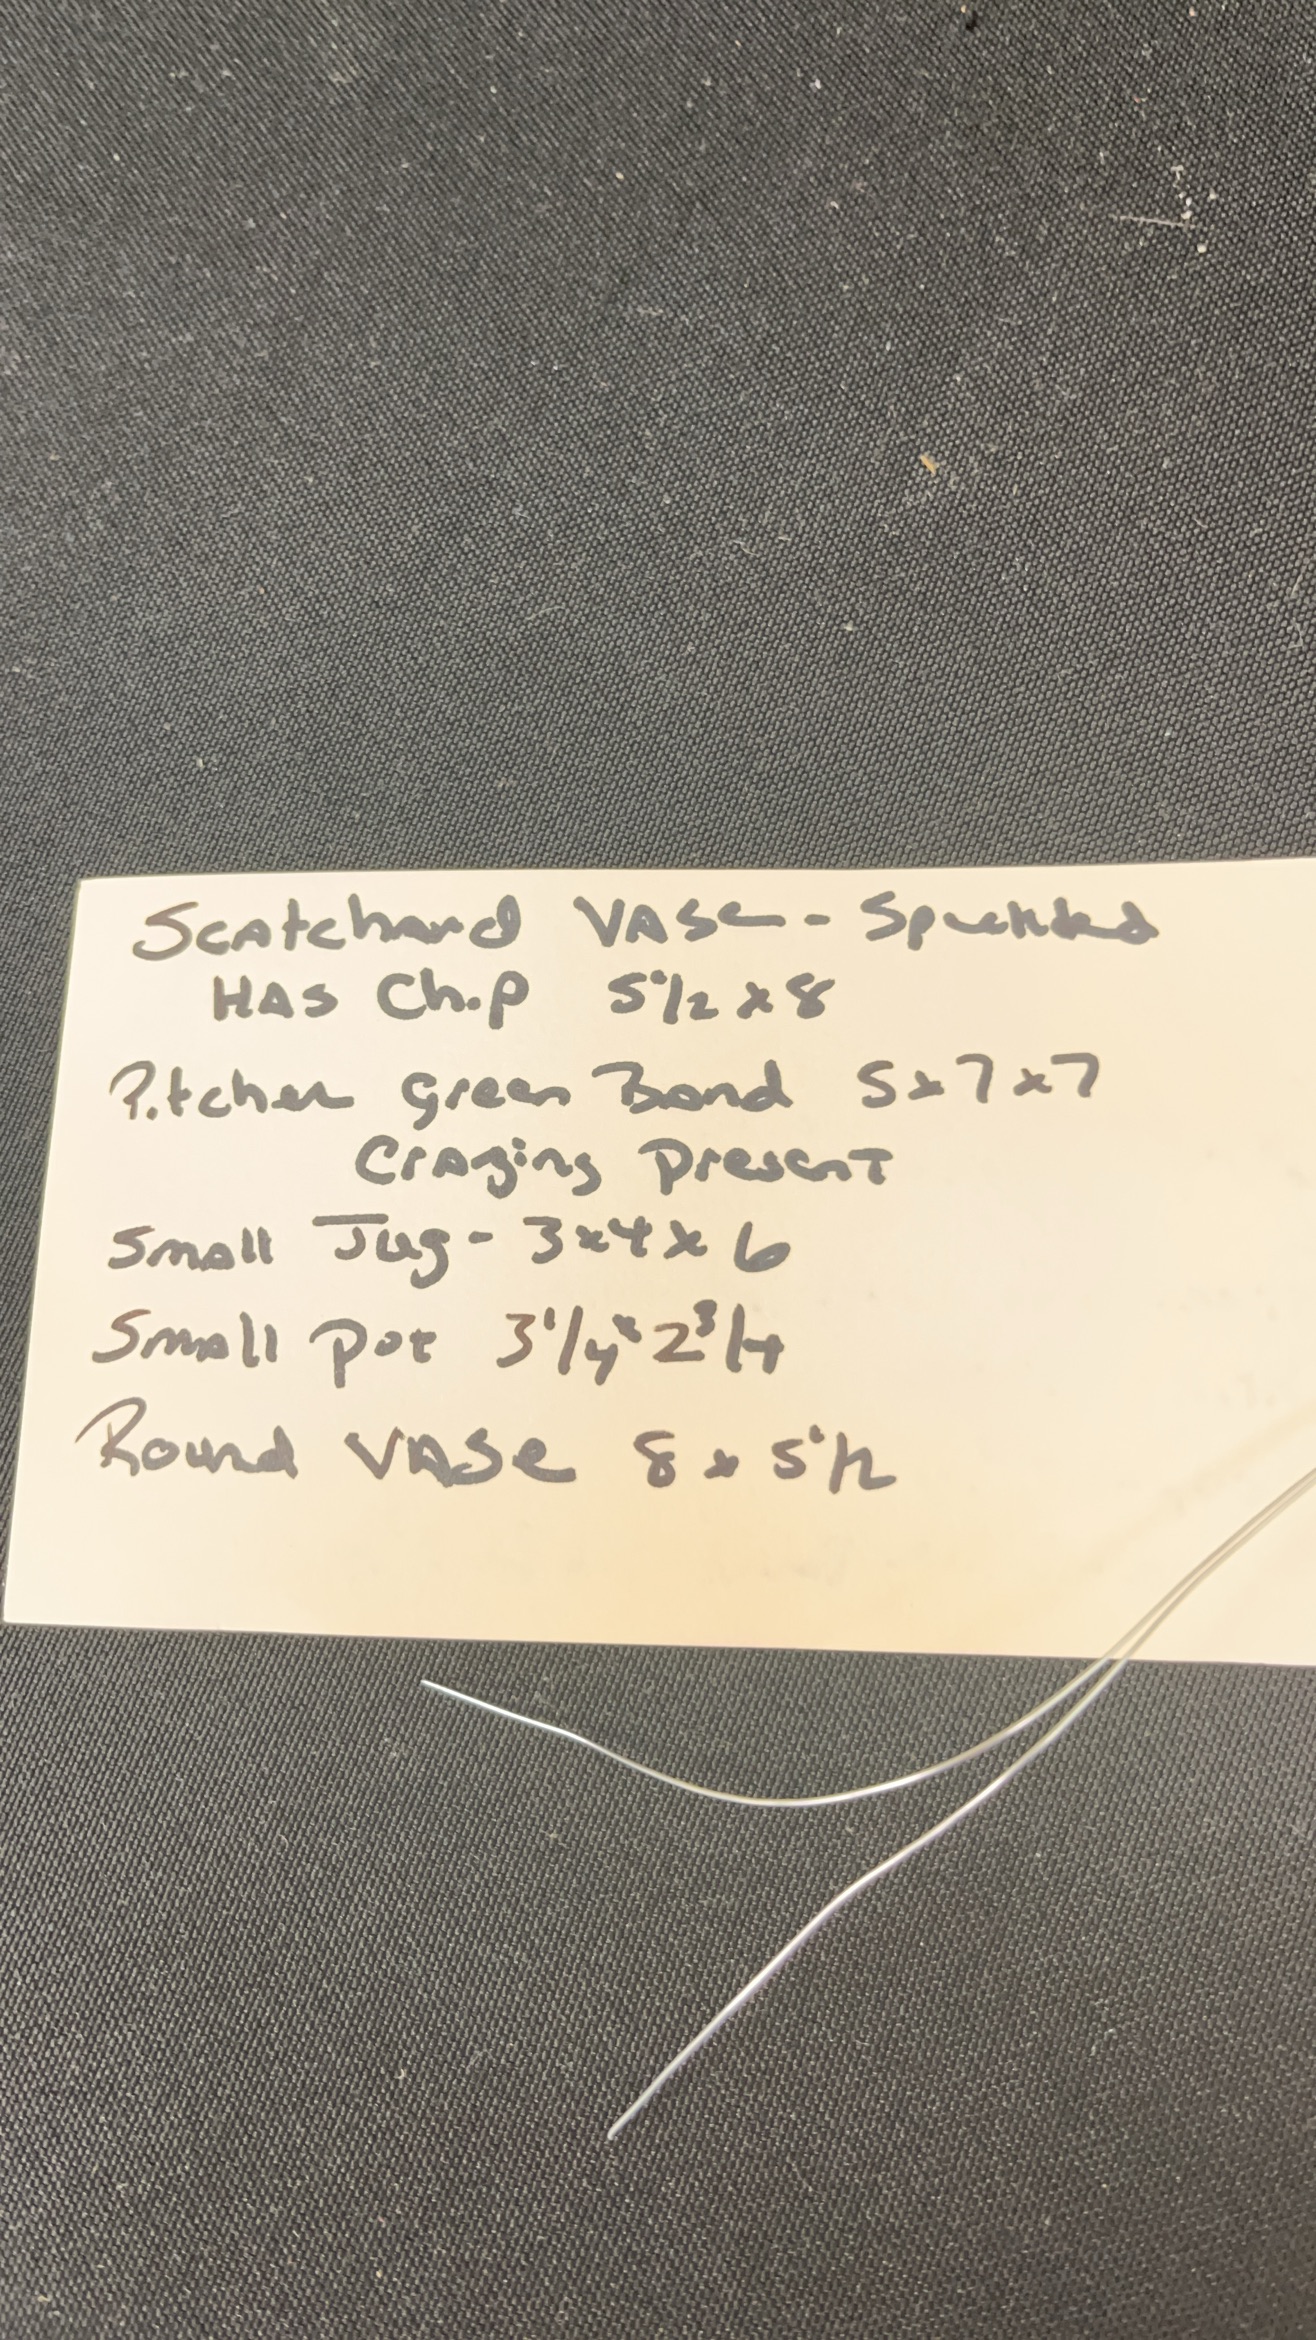 Scatchard VASe - Speckled
HAS Chip 5 1/2 x 8
Pitcher green Band 5 x 7 x 7
Crazing present
Small Jug - 3 x 4 x 6
Small pot 3 1/4 x 2 3/4
Round VASe 8 x 5 1/2